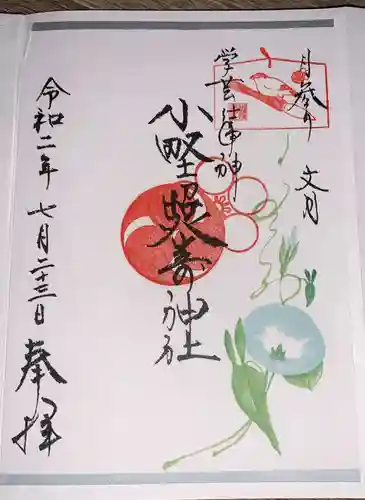 月参り 文月
学芸之神
小野照崎神社
令和二年 七月二十三日 奉拝